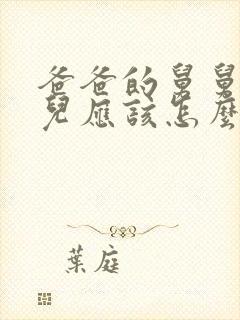 爸爸的舅舅
兒應該怎麼
葉庭